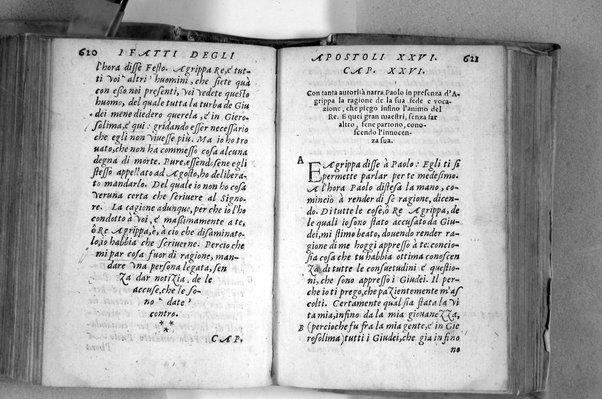 620 I FATTI DEGLI
l'hora disse Festo. Agrippa Re, e' tut-
ti voi altri huomini, che siete quà
con esso noi presenti, voi vedete questo
huomo, del quale tutta la turba de Giu
dei meno diedero querela, e' in Giero-
solima, e' qui: gridando esser necessario
che egli non vivesse piu. Ma io ho tro
uato, che non ha commesso cosa alcuna
degna di morte. Pure, essendo sene egli
stesso appellato ad Agosto, ho delibera-
to mandarlo. Del quale io non ho cosa
veruna certa che scriuere al Signo-
re. La cagione adunque, per che io l'ho
condotto à voi, e' massimamente a te,
ò Re Agrippa, è, à cio che disaminato-
lo, io habbia che scriuerne. Percio che
mi par cosa fuor di ragione, man-
dare vna persona legata, sen
za dar notizia, de le
accuse, che le so-
no date
contro.
* *
*
CAP.
APOSTOLI XXVI. 621
CAP. XXVI.
Con tanta autorità narra Paolo in presenza d'A-
grippa la ragione de la sua fede e voca-
zione, che piego insino l'animo del
Re. E quei gran maestri, senza far
altro, sene partono, cono-
scendo l'innocen-
za sua.
A
E Agrippa disse à Paolo: Egli ti si
permette parlar per te medesimo.
Al'hora Paolo distesa la mano, co-
minciò à render di se ragione, dicen-
do. Di tutte le cose, ò Re Agrippa, de
le quali io sono stato accusato da Giu-
dei, mi stimo beato, douendo render rag
gione di me hoggi appresso à te: concio-
sia cosa che tu habbia ottima conoscen
za di tutte le consuetudini e' questio-
ni, che sono appresso i Giudei. Il per-
che io ti prego, che pazientemente m'as
colti. Certamente qual sia stata la vi
ta mia, infino da la mia giouanezza,
B (percioche fu fra la mia gente, e' in Gie
rosolima) tutti i Giudei, che gia infino
no